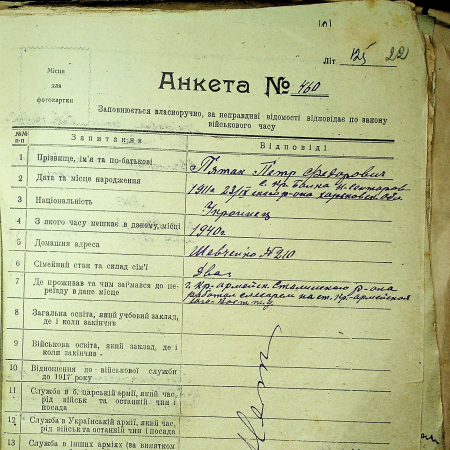 Літ 125 22
Місце
для
фотокартки
Анкета № 460
Заповнюється власноручно, за неправдиві відомості відповідає по закону
військового часу
№№
п-п
Запитання
Відповіді
1 Прізвище, ім'я та по-батькові
Пятак Петр Федорович
2 Дата та місце народження
1911 23/IX
3 Національність
Украинец
4 З якого часу мешкає в даному місці
1940г
5 Домашня адреса
Шевченко № 210
6 Сімейний стан та склад сім'ї
Два
7 Де проживав та чим займався до пе-
реїзду в дане місце
г. Кр-армейск Сталинского р-она
работал слесарем на ст. Кр-армейская
8 Загальна освіта, який учбовий заклад,
де і коли закінчив
9 Військова освіта, який заклад, де і
коли закінчив
10 Відношення до військової служби
до 1917 року
11 Служба в б. царській армії, який час,
рід військ та останній чин і
посада
12 Служба в Українській армії, який час,
рід військ та останній чин і посада
13 Служба в інших арміях (ва винятком